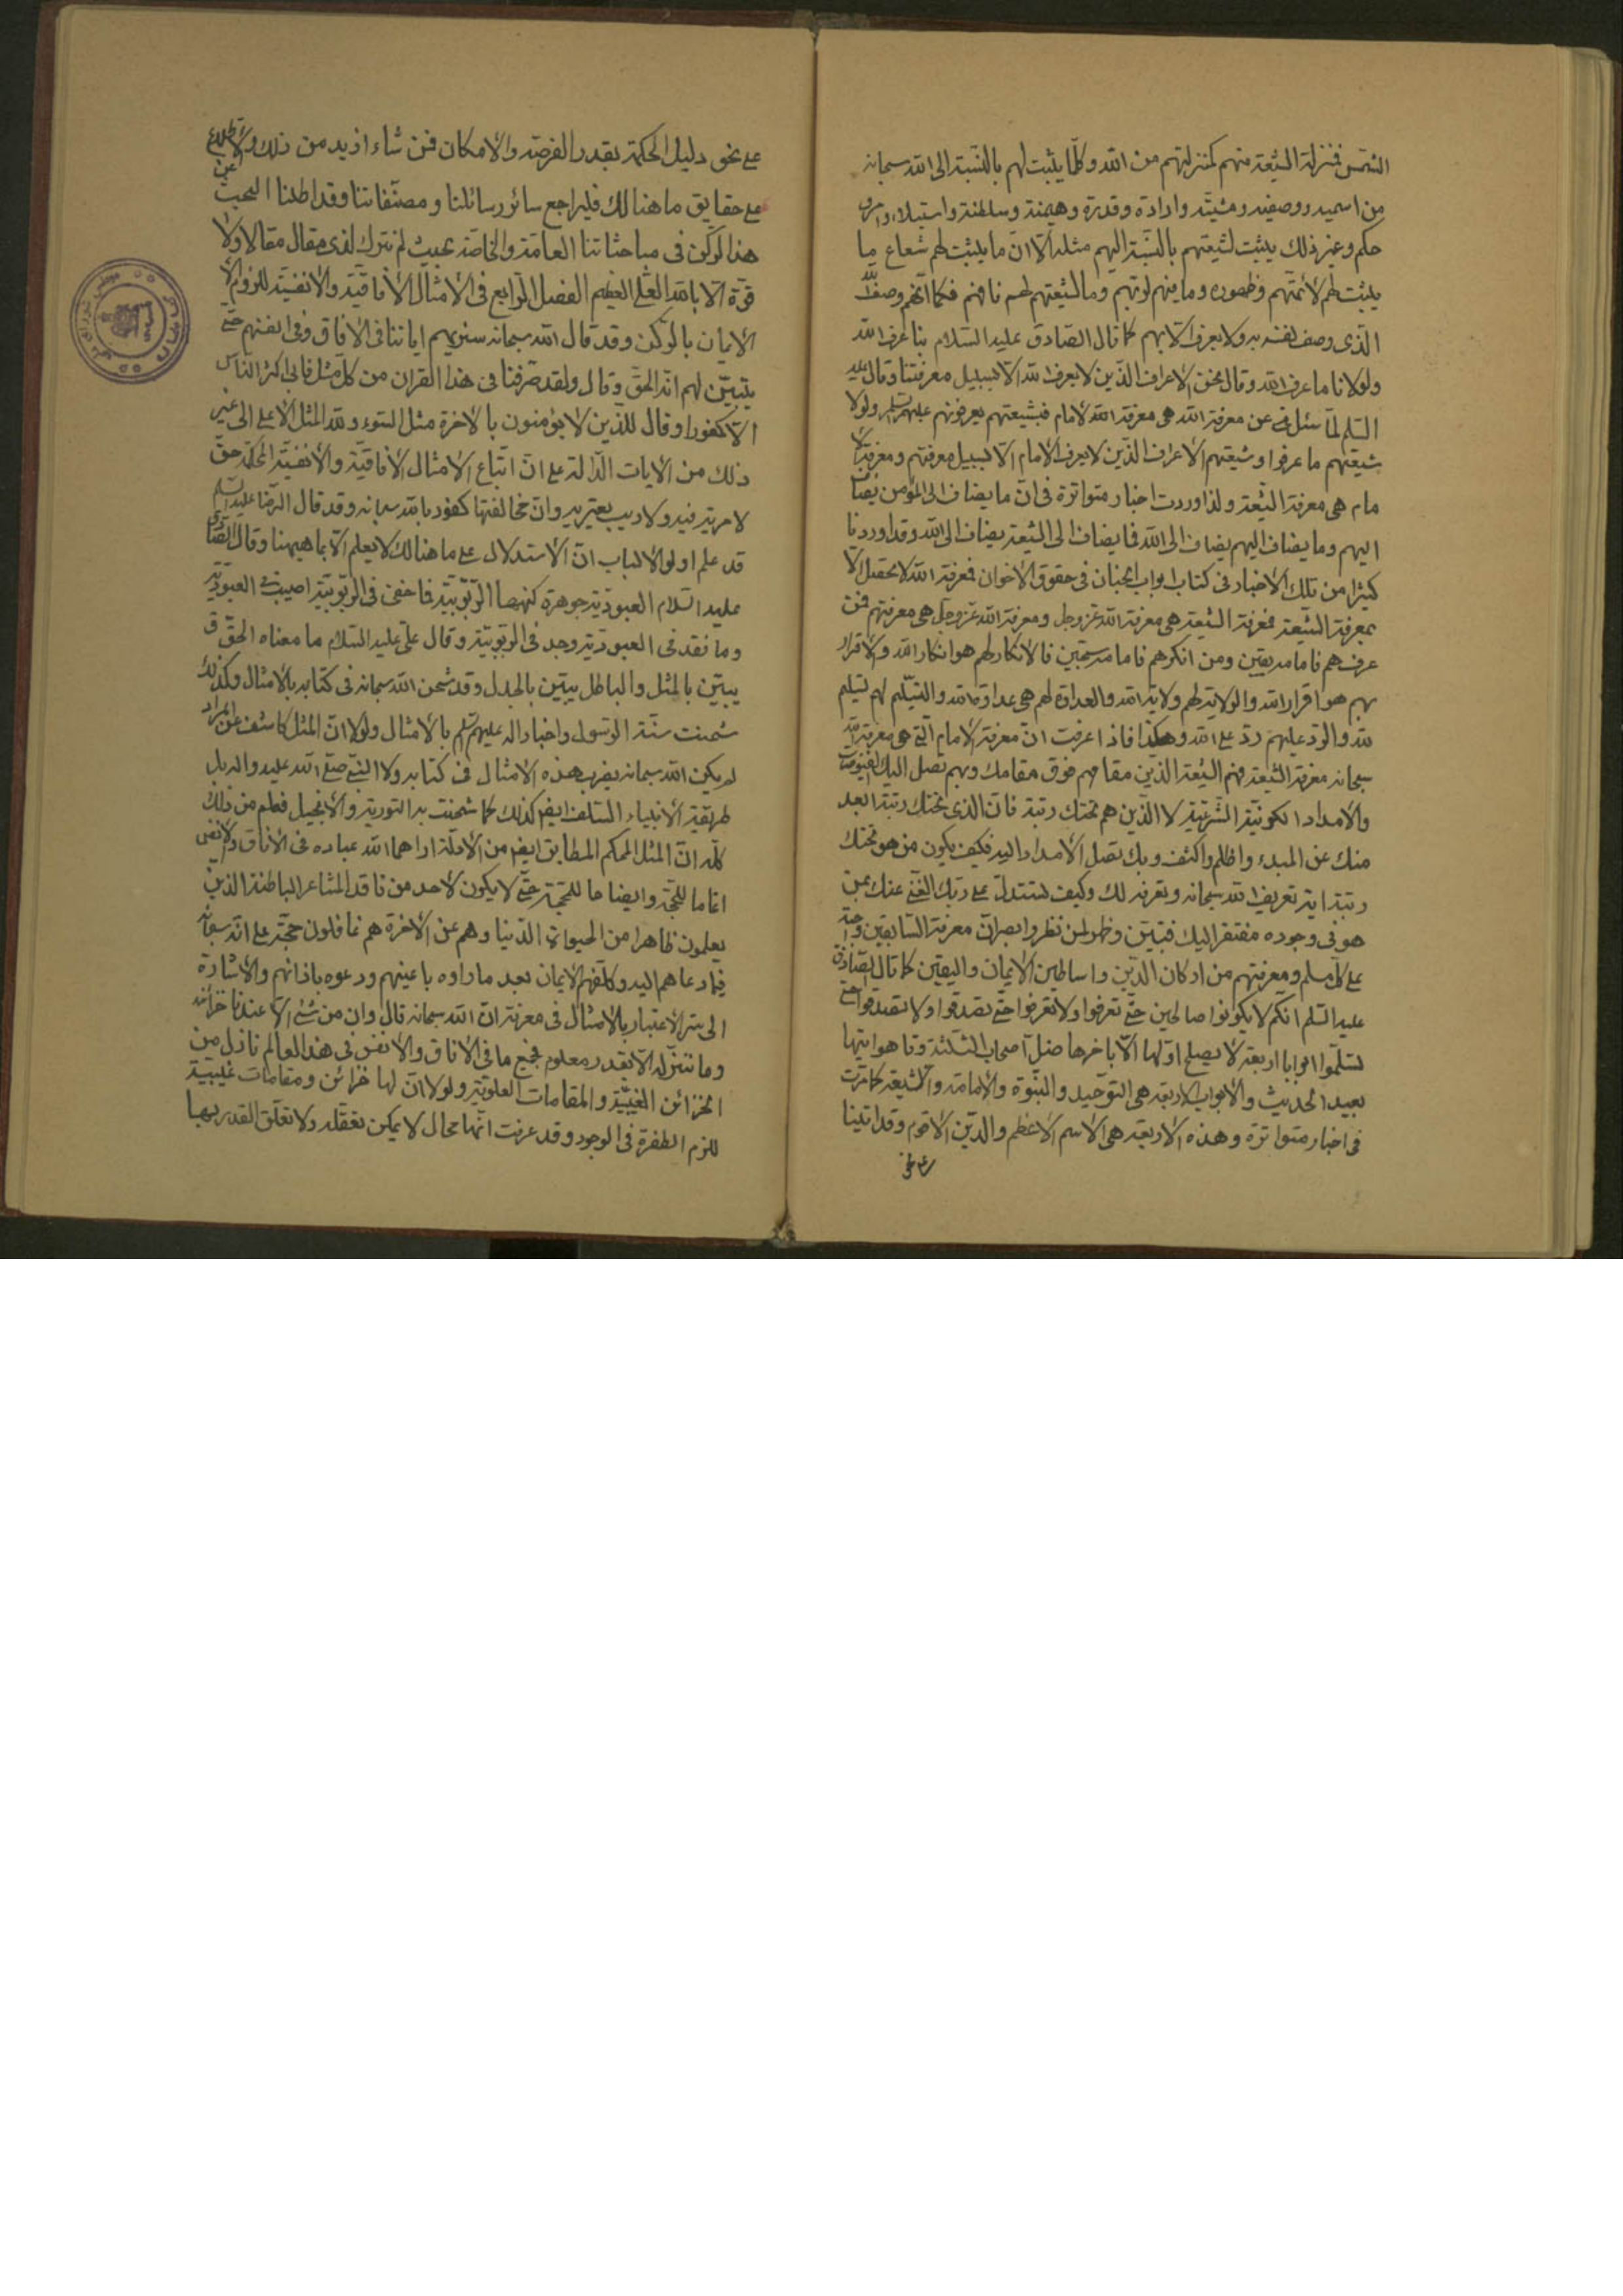 الشمس فمنزلة الشيعة منهم كمنزلتهم من الله وكلما يثبت لهم بالنسبة الى الله سبحانه
من اسمية ووصفية ومشية وارادة وقدرة وهيمنة وسلطنة واستيلاء وامر و
حكم وغير ذلك يثبت لشيعتهم بالنسبة اليهم مثله الا ان ما يثبت لهم شعاع ما
يثبت لهم لانهم وظهوره وما لشيعتهم لهم فكما انهم وصف الله
الذى وصف نفسه به ولا يعرف الا بهم كما قال الصادق عليه السلام بنا عرف الله
ولولانا ما عرف الله وقال نحن الاعراف الذين لا يعرف الله الا بسبيل معرفتنا وقال عليه
السلم لما سئل عن معرفة الله هى معرفة الامام فبشيعتهم يعرفونهم عليهم السلم ولولا
شيعتهم ما عرفوا وشيعتهم الاعراف الذين لا يعرف الامام الا بسبيل معرفتهم ومعرفة الا
مام هى معرفة الشيعة ولذا وردت اخبار متواترة فى ان ما يضاف الى المؤمن يضاف
اليهم وما يضاف اليهم يضاف الى الله فما يضاف الى الشيعة يضاف الى الله وقد اوردنا
كثيرا من تلك الاخبار فى كتاب ابواب الجنان فى حقوق الاخوان فمعرفة الله لا تحصل الا
بمعرفة الشيعة فمعرفة الشيعة هى معرفة الله عز وجل ومعرفة الله عز وجل هى معرفتهم فمن
عرفهم فامامه يقين ومن انكرهم فامامه سجين فالانكار لهم هو انكار الله والاقرار
بهم هو اقرار الله والولاية لهم ولاية الله والعداوة لهم هى عداوة الله والتسليم لهم تسليم
لله والرد عليهم رد على الله وهكذا فاذا عرفت ان معرفة الامام التى هى معرفة الله
سبحانه معرفة الشيعة فهم الشيعة الذين مقامهم فوق مقامك وبهم تصل اليك الفيوضات
والامداد الكونية الشرعية لا الذين هم تحتك رتبة فان الذى تحتك رتبة ابعد
منك عن المبدء واظلم واكثف وبك تصل الامداد اليه فكيف يكون من هو تحتك
رتبة اية تعريف الله سبحانه وتعرفه لك وكيف تستدل على ربك الغنى عنك بمن
هو فى وجوده مفتقر اليك فتبين وظهر لمن نظر وابصر ان معرفة السابقين واجبة
على كل مسلم ومعرفتهم من اركان الدين واساطين الايمان واليقين كما قال الصادق
عليه السلم انكم لا تكونوا صالحين حتى تعرفوا ولا تعرفوا حتى تصدقوا ولا تصدقوا حتى
تسلموا ابوابا اربعة لا يصلح اولها الا باخرها ضل اصحاب الثلثة وتاهوا تيها
بعيدا الحديث والابواب الاربعة هى التوحيد والنبوة والامامة والشيعة كما مرت
فى اخبار متواترة وهذه الاربعة هى الاسم الاعظم والدين الاقوم وقد اتينا
على نحو دليل الحكمة بقدر الفرصة والامكان فمن شاء ازيد من ذلك والاطلاع
على حقايق ما هنالك فليراجع سائر رسائلنا ومصنفاتنا وقد اطلنا البحث عن
هذا الركن فى مباحثاتنا العامة والخاصة بحيث لم نترك لذى مقال مقالا ولا
قوة الا بالله العلى العظيم الفصل الرابع فى الامثال الافاقية والانفسية للزوم
الايمان بالركن وقد قال الله سبحانه سنريهم اياتنا فى الافاق وفى انفسهم حتى
يتبين لهم انه الحق وقال ولقد صرفنا فى هذا القران من كل مثل فابى اكثر الناس
الا كفورا وقال للذين لا يؤمنون بالاخرة مثل السوء ولله المثل الاعلى الى غير
ذلك من الايات الدالة على ان اتباع الامثال الافاقية والانفسية المحكمة حق
لا مرية فيه ولا ريب يعتريه وان مخالفتها كفور بالله سبحانه وقد قال الرضا عليه السلم
قد علم اولوا الالباب ان الاستدلال على ما هنالك لا يعلم الا بما هيهنا وقال الصادق
عليه السلام العبودية جوهرة كنهها الربوبية فما خفى فى الربوبية اصيب فى العبودية
وما فقد فى العبودية وجد فى الربوبية وقال على عليه السلام ما معناه الحق
يبين بالمثل والباطل يبين بالجدل وقد شحن الله سبحانه فى كتابه بالامثال وكذلك
شحنت سنة الرسول واخبار اله عليهم السلم بالامثال ولولا ان المثل كاشف عن المراد
لم يكن الله سبحانه يضرب هذه الامثال فى كتابه ولا النبى صلى الله عليه واله بل
طريقة الانبياء السلف ايضا كذلك كما شحنت به التورية والانجيل فعلم من ذلك
كله ان المثل المحكم المطابق ايضا من الادلة اراهما الله عباده فى الافاق والانفس
اتماما للحجة وايضاحا للمحجة حتى لا يكون لاحد من فاقد المشاعر الباطنة الذين
يعلمون ظاهرا من الحيوة الدنيا وهم عن الاخرة هم غافلون حجة على الله سبحانه
فيما دعاهم اليه وكلفهم الايمان بعد ما راوه باعينهم ووعوه باذانهم والاشارة
الى سر الاعتبار بالامثال فى معرفة ان الله سبحانه قال وان من شئ الا عندنا خزائنه
وما ننزله الا بقدر معلوم فجميع ما فى الافاق والانفس فى هذا العالم نازل من
الخزائن الغيبية والمقامات العلوية ولولا ان لها خزائن ومقامات غيبية
للزم الطفرة فى الوجود وقد عرفت انها محال لا يمكن تعقله ولا تعلق القدر بها